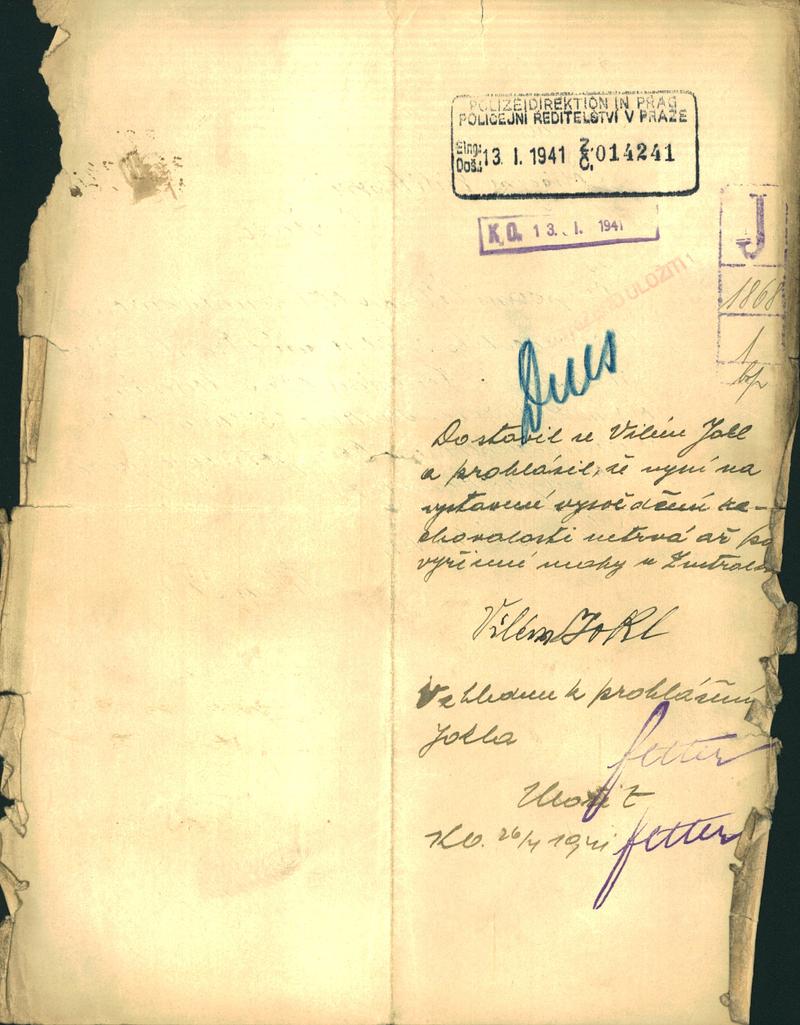 POLIZEIDIREKTION IN PRAG
POLICEJNÍ ŘEDITELSTVÍ V PRAZE
Eing:
Došl: 13. I. 1941 Z/Č. 014241
K.O. 13. I. 1941
J
ULOŽITI
1868
1
Dnes
Dostavil se Vilém Jokl
a prohlásil, že nyní na
vystavení vysvědčení za-
chovalosti netrvá až po
vyřízení u
Vilém Jokl
Vzhledem k prohlášení
Jokla
fetter
Uložit
K.O. 26/ 1941 fetter